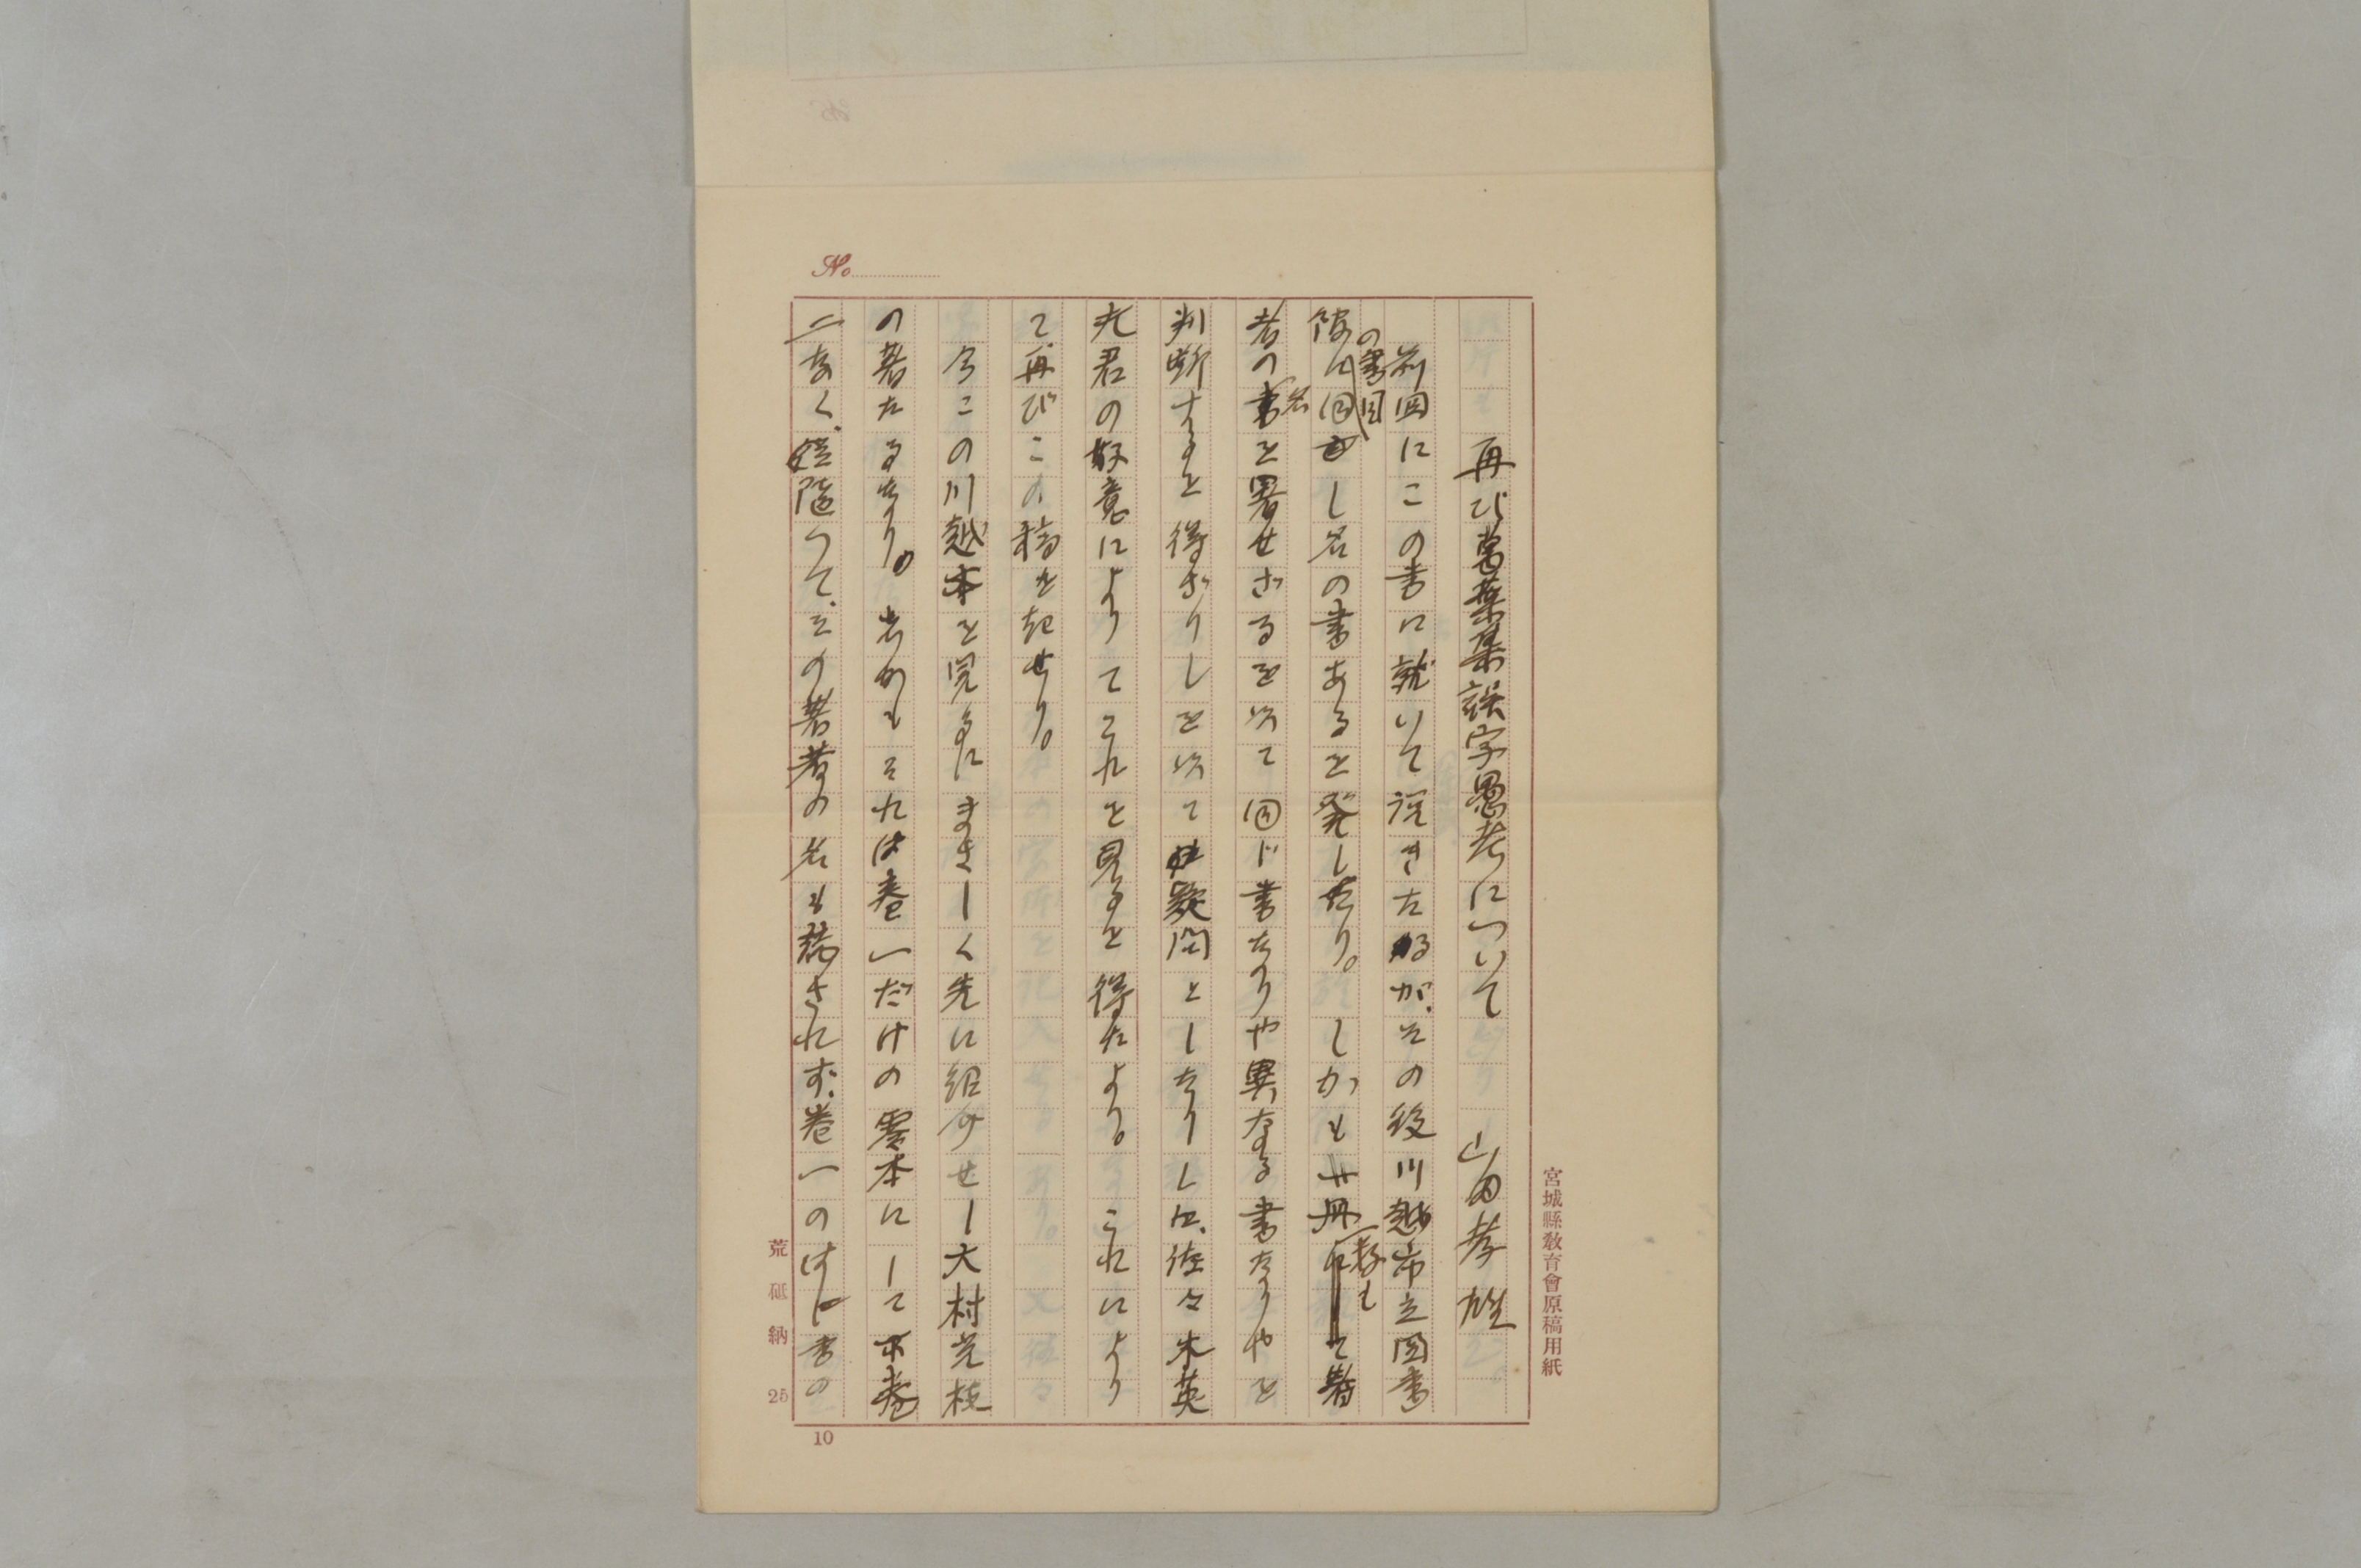 No.
宮城縣教育會原稿用紙
再び萬葉集誤字愚考について 山田孝雄
前回にこの書に就いて説きたるが、その後川越市立図書
館の書目に同じ名の書あるを発したり。しかも冊数も著
者の名を署せざるを以て同じ書なりや異なる書なりやを
判断するを得ざりしを以て疑問としたりしに、佐々木英
夫君の好意によりてこれを見るを得たより。これにより
て、再びこの稿を起せり。
今この川越本を見るにまさしく先に紹介せし大村光枝
の著たるなり。しかもそれは巻一だけの零本にして下巻
二なく、随つて、その著者の名も署されず、巻一のはじめの
荒砥納 25
10